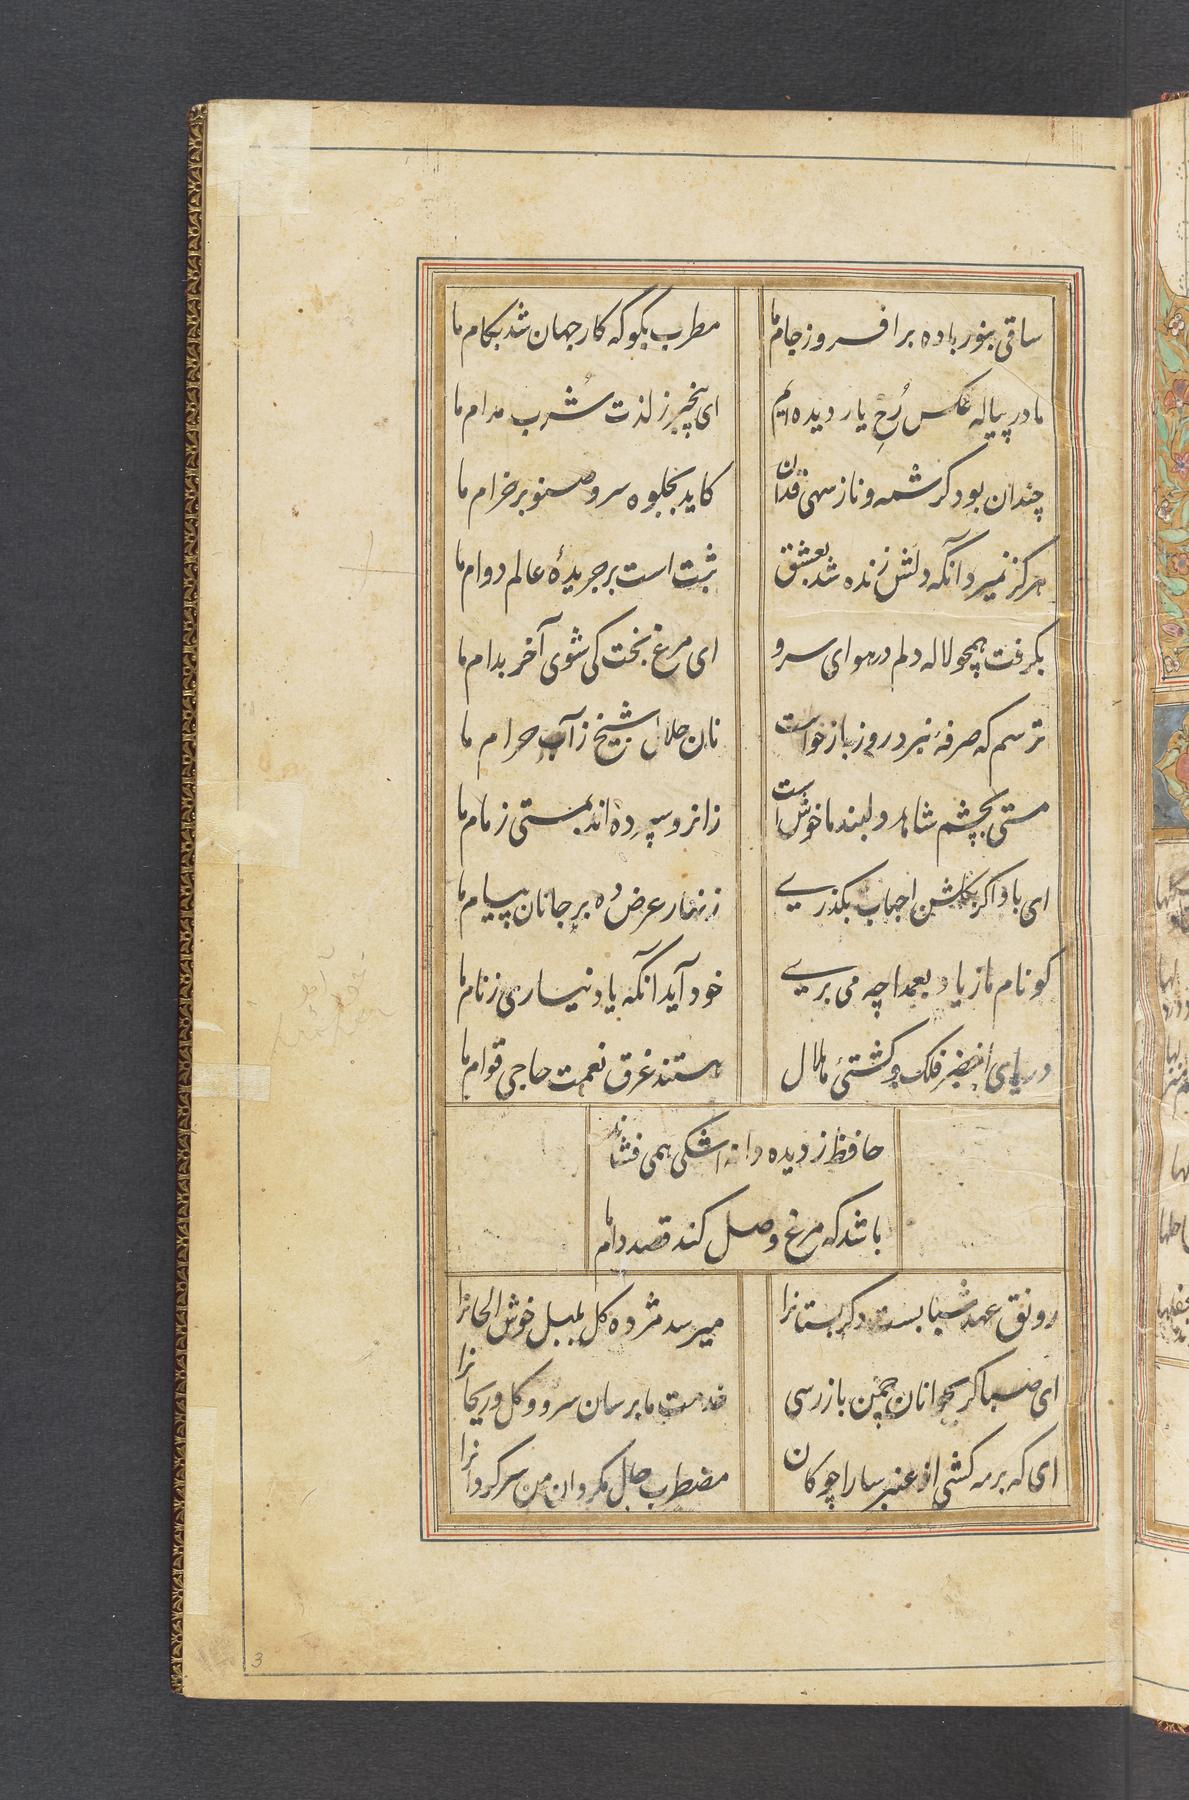 ساقی بنور باده برافروز جام ما
مطرب بگو که کار جهان شد بکام ما
ما در پیاله عکس رُخ یار دیده‌ایم
ای بیخبر ز لذت شُرب مدام ما
چندان بود کرشمه و ناز سهی قدان
کاید بجلوه سرو صنوبر خرام ما
هرگز نمیرد آنکه دلش زنده شد بعشق
ثبت است بر جریدهٔ عالم دوام ما
بگرفت همچو لاله دلم در هوای سرو
ای مرغ بخت کی شوی آخر بدام ما
ترسم که صرفهٔ نبرد روز بازخواست
نان حلال شیخ ز آب حرام ما
مستی بچشم شاهد دلبند ما خوش است
زانرو سپرده‌اند بمستی زمام ما
ای باد اگر بگلشن احباب بگذری
زنهار عرض ده بر جانان پیام ما
گو نام ما ز یاد بعمدا چه می بری
خود آید آنکه یاد نیاری ز نام ما
دریای اخضر فلک و کشتئ هلال
هستند غرق نعمت حاجی قوام ما
حافظ ز دیده دانه اشکی همی فشان
باشد که مرغ وصل کند قصد دام ما
رونق عهد شبابست دگر بستانرا
میرسد مژده گل بلبل خوش الحانرا
ای صبا گر بجوانان چمن باز رسی
خدمت ما برسان سرو و گل و ریحانرا
ای که بر مه کشی از عنبر سارا چوگان
مضطرب حال مگردان من سرگردانرا
3